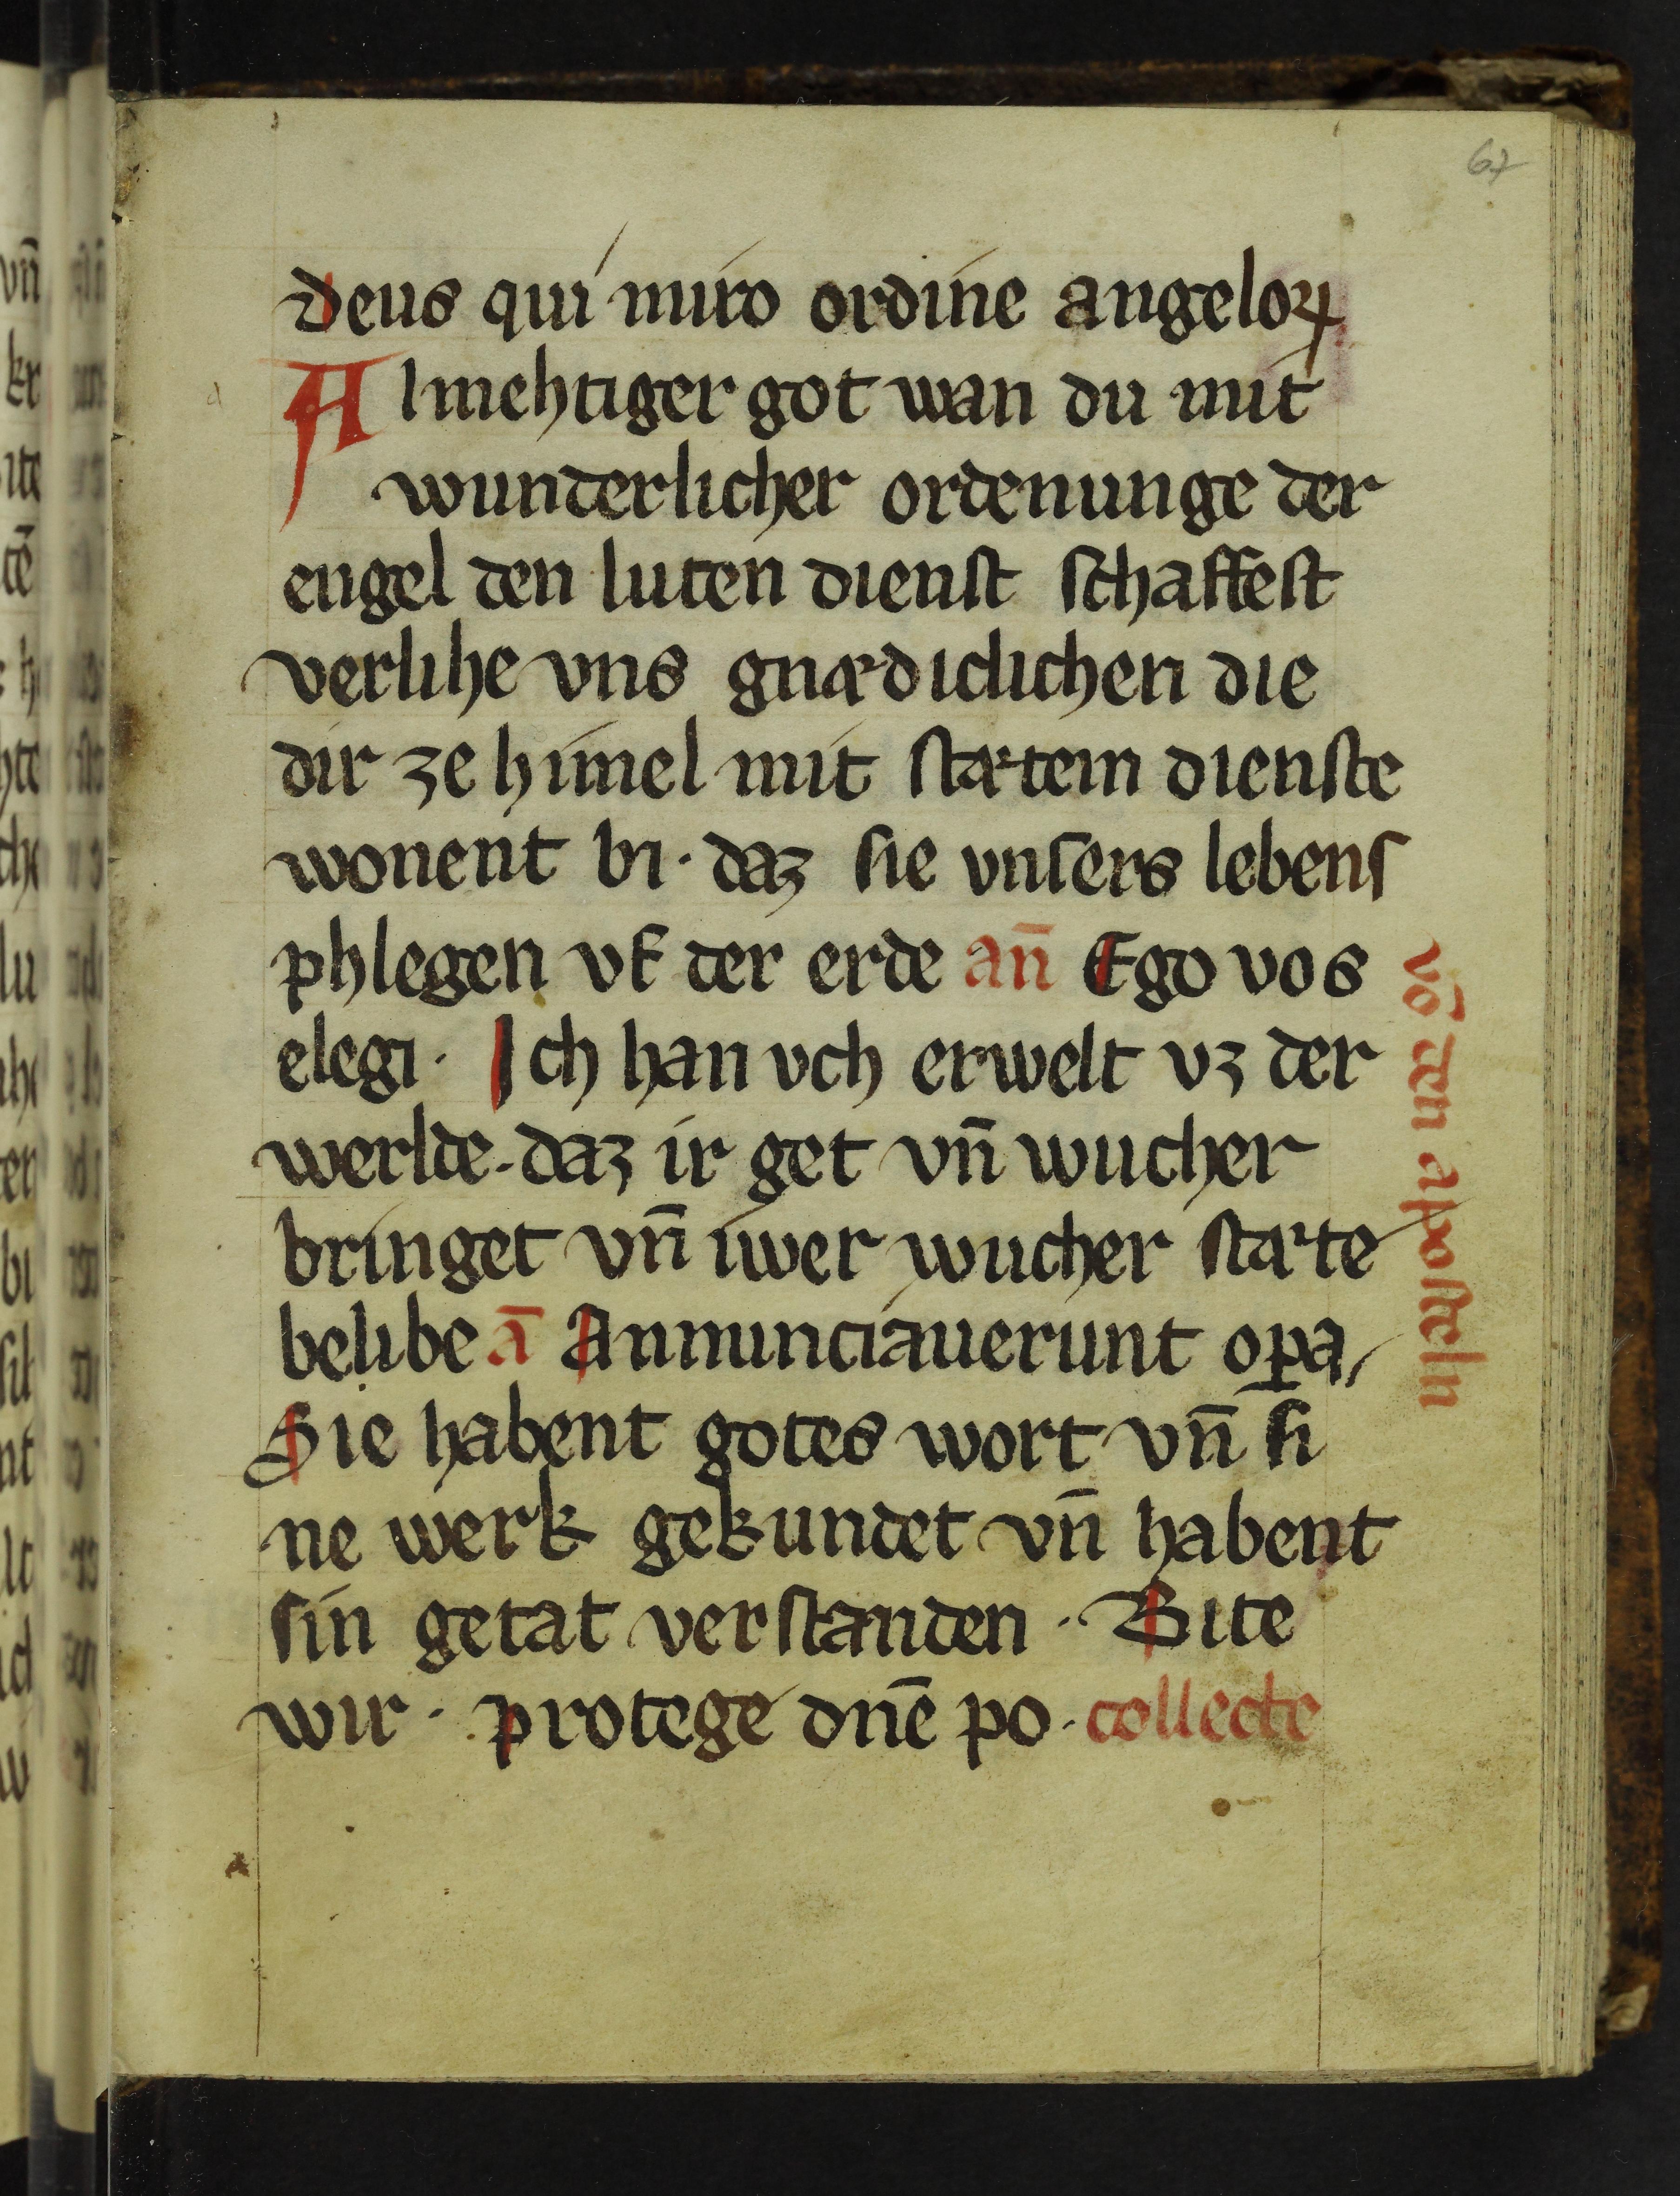 67
deus qui miro ordine angeloꝝ
Almehtiger got wan du mit
wunderlicher ordenunge der
engel den luten dienst schaffest
verlihe vns gnædiclichen die
dir ze himel mit stætem dienste
wonent bi · daz sie vnsers lebens
phlegen vf der erde an̄ Ego vos
elegi · Ich han vch erwelt vz der
werlde · daz ir get vn̄ wucher
bringet vn̄ iwer wucher stæte
belibe ā Annunciauerunt oꝑa
Sie habent gotes wort vn̄ si
ne werk gekundet vn̄ habent
sin getat verstanden · Bite
wir · protege dn̄e po · collecte
vō den aposteln